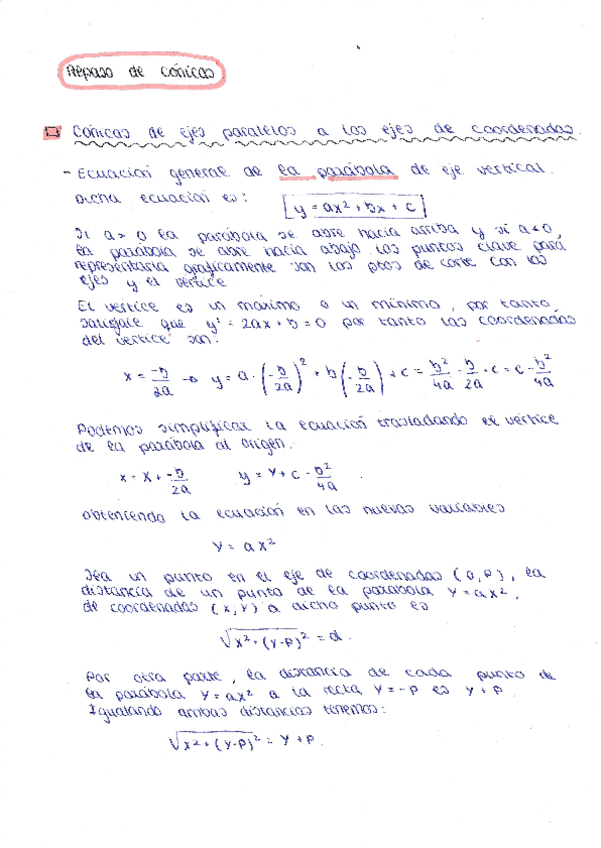 Repaso de cónicas
Cónicas de ejes paralelos a los ejes de coordenadas.
- Ecuación general de la parábola de eje vertical.
Dicha ecuación es: y = ax² + bx + c
Si a > 0 la parábola se abre hacia arriba y si a < 0,
la parábola se abre hacia abajo. Los puntos clave para
representarla gráficamente son los ptos de corte con los
ejes y el vértice
El vértice es un máximo o un mínimo, por tanto,
satisface que y' = 2ax + b = 0 por tanto las coordenadas
del vértice son:
x = -b/2a → y = a · (-b/2a)² + b (-b/2a) + c = b²/4a - b/2a + c = c - b²/4a
Podemos simplificar la ecuación trasladando el vértice
de la parábola al origen.
x = X + -b/2a y = Y + c - b²/4a
obteniendo la ecuación en las nuevas variables
Y = aX²
Sea un punto en el eje de coordenadas (0, P), la
distancia de un punto de la parábola Y = ax²,
de coordenadas (X, Y) a dicho punto es
√x² + (Y-P)² = d.
Por otra parte, la distancia de cada punto de
la parábola Y = ax² a la recta Y = -P es Y + P.
Igualando ambas distancias tenemos:
√x² + (Y-P)² = Y + P.